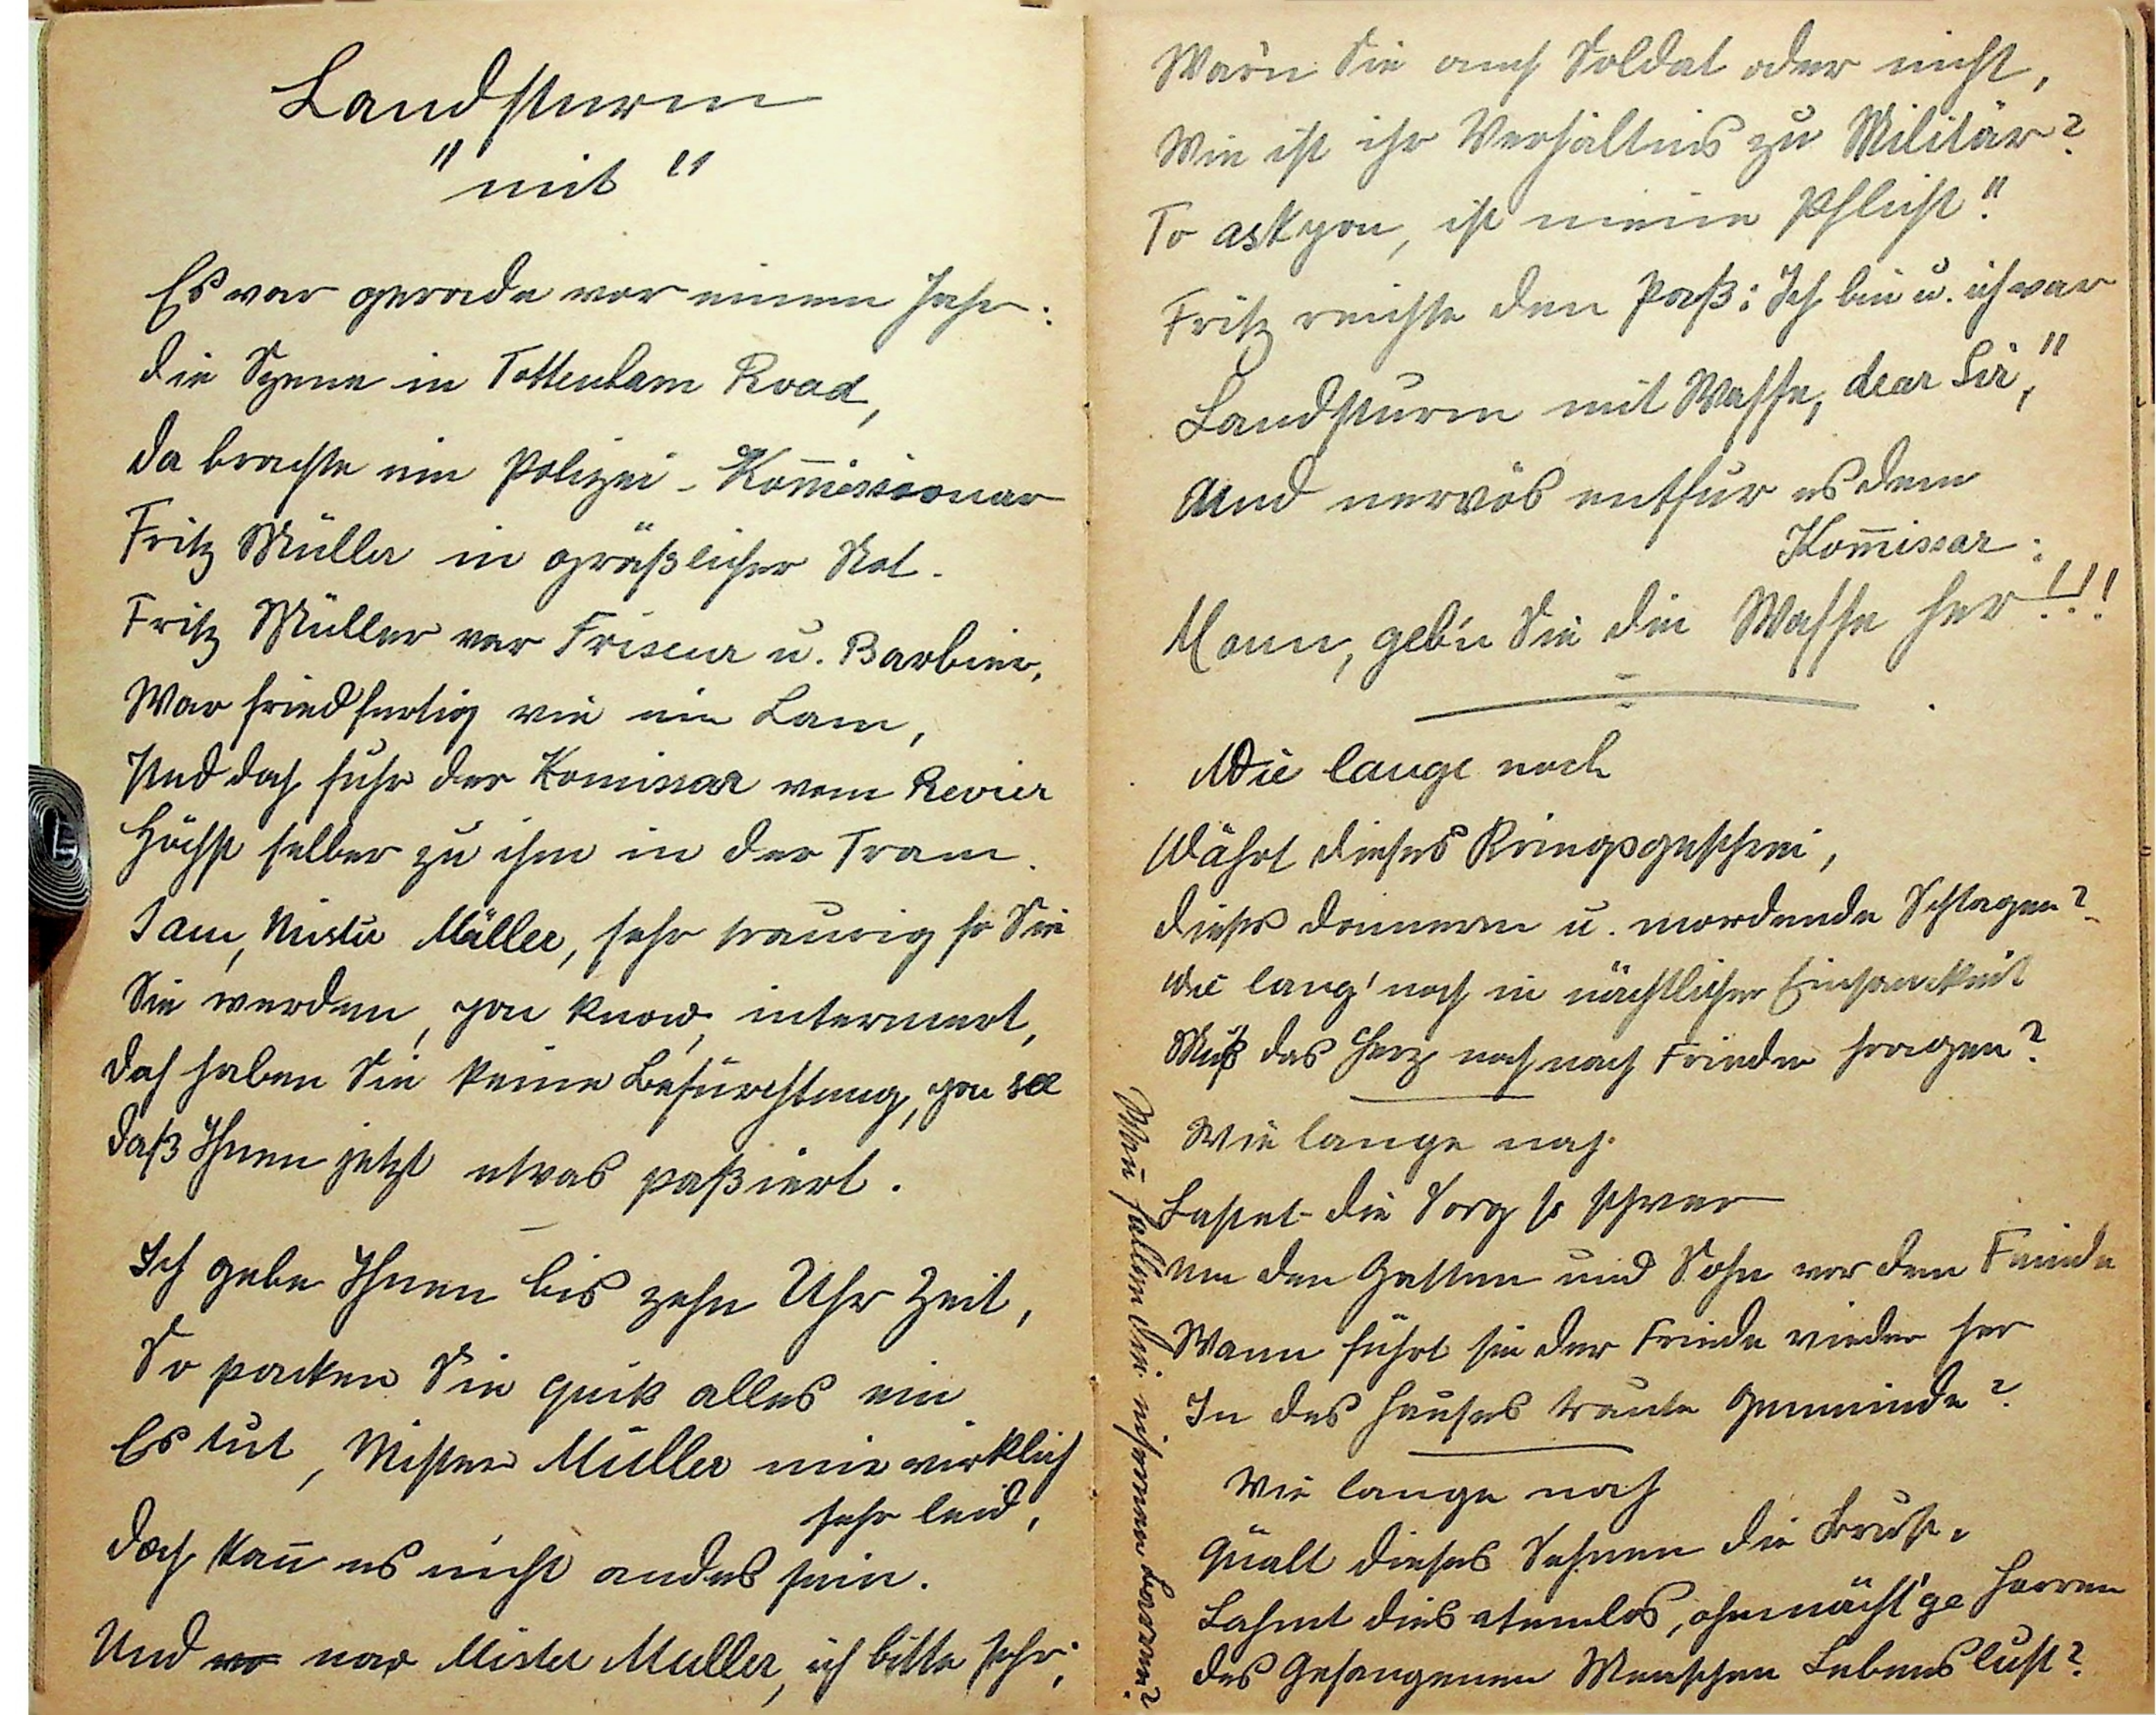 Landsturm
"mit"
Es war gerade vor einem Jahr:
die Szene in Tottenham Road,
da brachte ein Polizei-Kom̅issionar
Fritz Müller in gräßlicher Not.
Fritz Müller war Friseur u. Barbier,
War friedfertig wie ein Lam,
Und doch fuhr der Komissar vom Revier
Höchst selber zu ihm in der Tram.
I am, Mister Müller, sehr traurig so Sie
Sie werden, you know, interniert,
doch haben Sie keine Befürchtung, you see
daß Ihnen jetzt etwas paßiert.
Ich gebe Ihnen bis zehn Uhr Zeit,
So packen Sie quik alles ein
Es tut, Mister Müller mir wirklich
sehr leid,
doch kan̅ es nicht andes sein.
Und now Mister Muller, ich bitte sehr;
War'n Sie auch Soldat oder nicht,
Wie ist ihr Verhältnis zu Militär?
To ask you, ist meine Pflicht".
Fritz reichte den Paß: Ich bin u. ich war
Landsturm mit Waffe, dear Sir,"
Und nervös entfur es dem
Kom̅issar:
Mann, geb'n Sie die Waffe her!!!
Wie lange noch
Währt dieses Kriegsgeschrei,
dieses donnern u. mordende Schlagen?
Wie lang' noch in nächtlicher Einsamkeit
Muß das Herz noch nach Frieden fragen?
Wie lange noch
Lastet die Sorg so schwer
Um den Gatten und Sohn vor dem Feinde
Wann führt sie der Friede wieder her
In des Hauses traute Gemeinde?
Wie lange noch
Quält dieses Sehnen die Brust,
Lähmt dies atemlos, ohnmächt'ge Harren
des Gefangenen Menschen Lebenslust?
Wan̅ fallen die eisernen Barren?